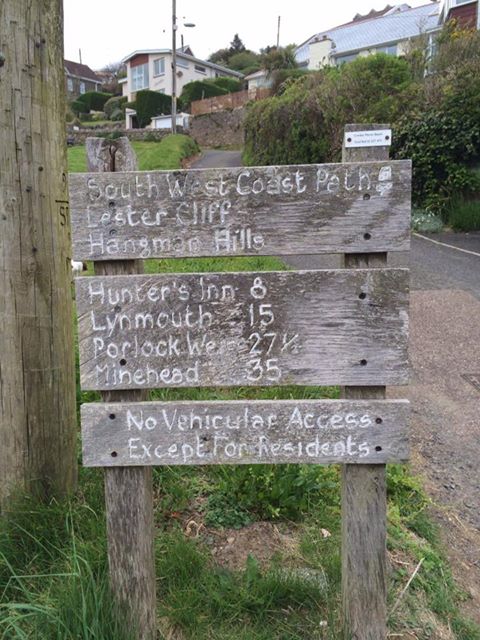 South West Coast Path
Lester Cliff
Hangman Hills
Hunter's Inn 8
Lynmouth 15
Porlock Weir 27 ½
Minehead 35
No Vehicular Access
Except For Residents